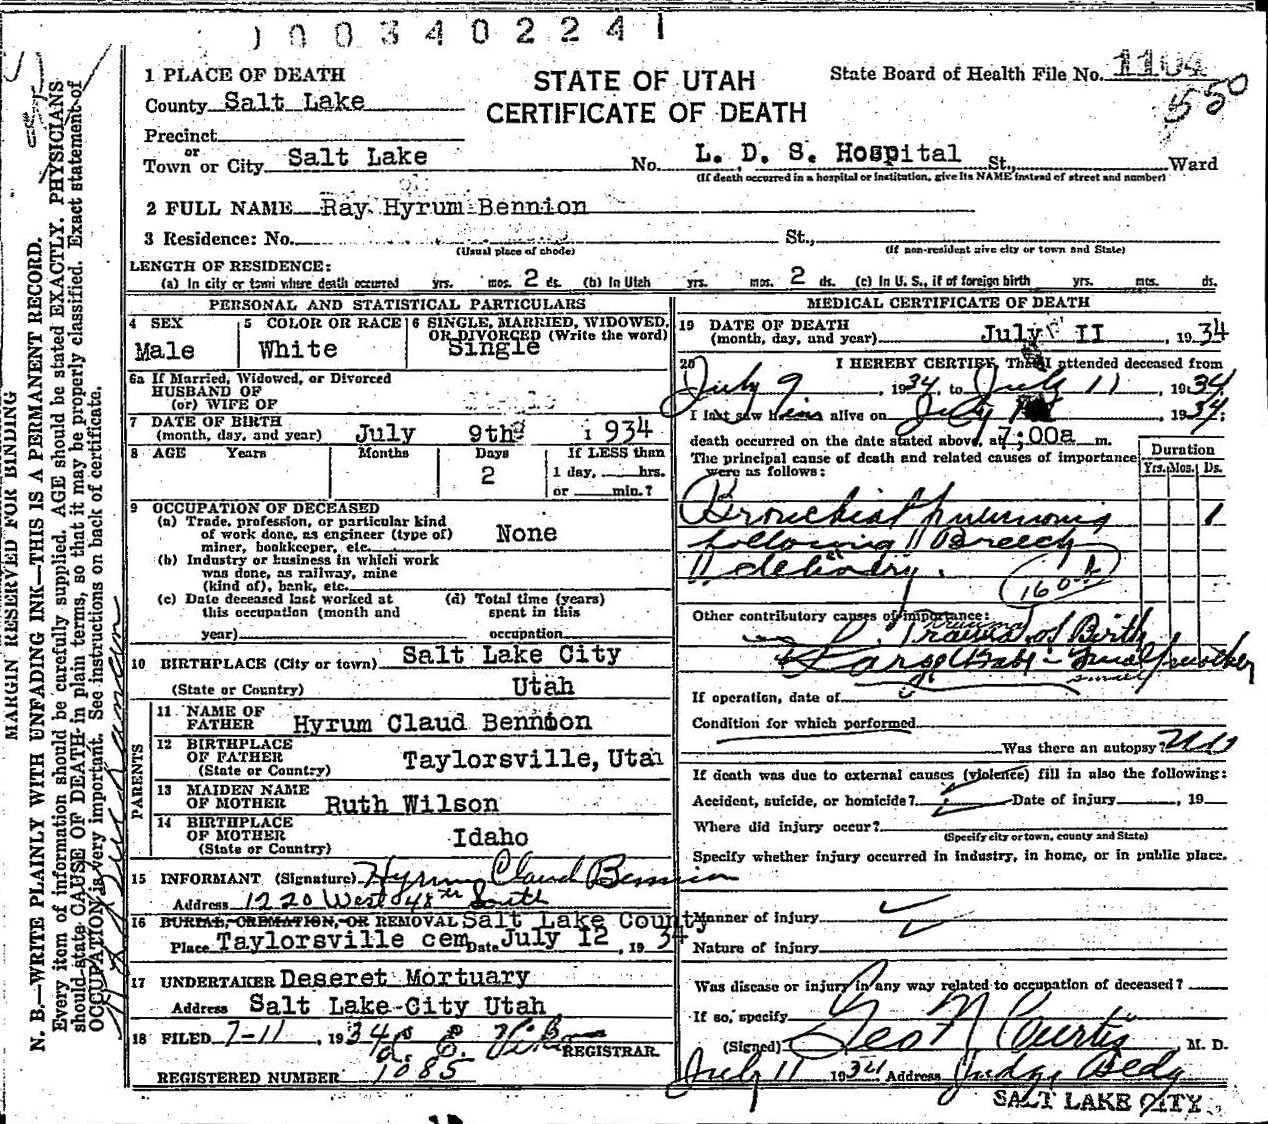 1003402241
1 PLACE OF DEATH
STATE OF UTAH
CERTIFICATE OF DEATH
State Board of Health File No. 1104
550
County Salt Lake
Precinct
or
Town or City Salt Lake No. L. D. S. Hospital St., Ward
(If death occurred in a hospital or institution, give its NAME instead of street and number)
2 FULL NAME Ray Hyrum Bennion
3 Residence: No. St.,
(Usual place of abode) (If non-resident give city or town and State)
LENGTH OF RESIDENCE:
(a) In city or town where death occurred yrs. mos. 2 ds. (b) In Utah yrs. mos. 2 ds. (c) In U. S., if of foreign birth yrs. mos. ds.
PERSONAL AND STATISTICAL PARTICULARS
4 SEX 5 COLOR OR RACE 6 SINGLE, MARRIED, WIDOWED, OR DIVORCED (Write the word)
Male White Single
6a If Married, Widowed, or Divorced
HUSBAND OF
(or) WIFE OF
7 DATE OF BIRTH
(month, day, and year) July 9th 1934
8 AGE Years Months Days If LESS than
2 1 day, hrs.
or min.?
9 OCCUPATION OF DECEASED
(a) Trade, profession, or particular kind
of work done, as engineer (type of)
miner, bookkeeper, etc. None
(b) Industry or business in which work
was done, as railway, mine
(kind of), bank, etc.
(c) Date deceased last worked at (d) Total time (years)
this occupation (month and spent in this
year) occupation
10 BIRTHPLACE (City or town) Salt Lake City
(State or Country) Utah
PARENTS
11 NAME OF
FATHER Hyrum Claud Bennion
12 BIRTHPLACE
OF FATHER Taylorsville, Utah
(State or Country)
13 MAIDEN NAME
OF MOTHER Ruth Wilson
14 BIRTHPLACE
OF MOTHER Idaho
(State or Country)
15 INFORMANT (Signature) Hyrum Claud Bennion
Address 1220 West 48th South
16 BURIAL, CREMATION, OR REMOVAL Salt Lake County
Place Taylorsville cem Date July 12, 1934
17 UNDERTAKER Deseret Mortuary
Address Salt Lake City Utah
18 FILED 7-11, 1934
REGISTRAR
REGISTERED NUMBER 1085
MEDICAL CERTIFICATE OF DEATH
19 DATE OF DEATH
(month, day, and year) July II, 1934
20 I HEREBY CERTIFY, That I attended deceased from
July 9, 1934, to July 11, 1934
I last saw him alive on July 1934;
death occurred on the date stated above, at 7;00a m.
The principal cause of death and related causes of importance
were as follows:
Duration
Yrs. Mos. Ds.
Bronchial pneumonia 1
following Breech
delivery.
160
Other contributory causes of importance:
Trauma
Trauma of Birth
Large Babe - Small mother
small
If operation, date of
Condition for which performed
Was there an autopsy? No
If death was due to external causes (violence) fill in also the following:
Accident, suicide, or homicide? Date of injury , 19
Where did injury occur?
(Specify city or town, county and State)
Specify whether injury occurred in industry, in home, or in public place.
Manner of injury
Nature of injury
Was disease or injury in any way related to occupation of deceased?
If so, specify
(Signed) Geo N Curtis, M. D.
July 11 1934 Address Judge Bldg
SALT LAKE CITY
MARGIN RESERVED FOR BINDING
N. B.—WRITE PLAINLY WITH UNFADING INK—THIS IS A PERMANENT RECORD.
Every item of information should be carefully supplied. AGE should be stated EXACTLY. PHYSICIANS
should state CAUSE OF DEATH in plain terms, so that it may be properly classified. Exact statement of
OCCUPATION is very important. See instructions on back of certificate.